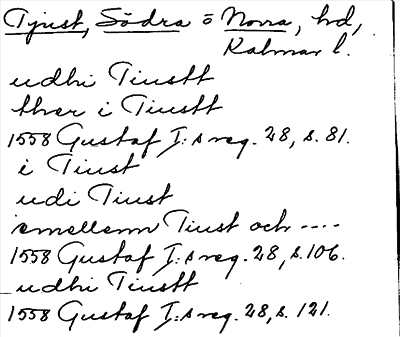 Tjust, Södra o Norra, hd,
Kalmar l.
udhi Tiustt
ther i Tiustt
1558 Gustaf I:s reg. 28, s. 81.
i Tiust
udi Tiust
emellenn Tiust och ----
1558 Gustaf I:s reg. 28, s. 106.
udhi Tiustt
1558 Gustaf I:s reg. 28, s. 121.